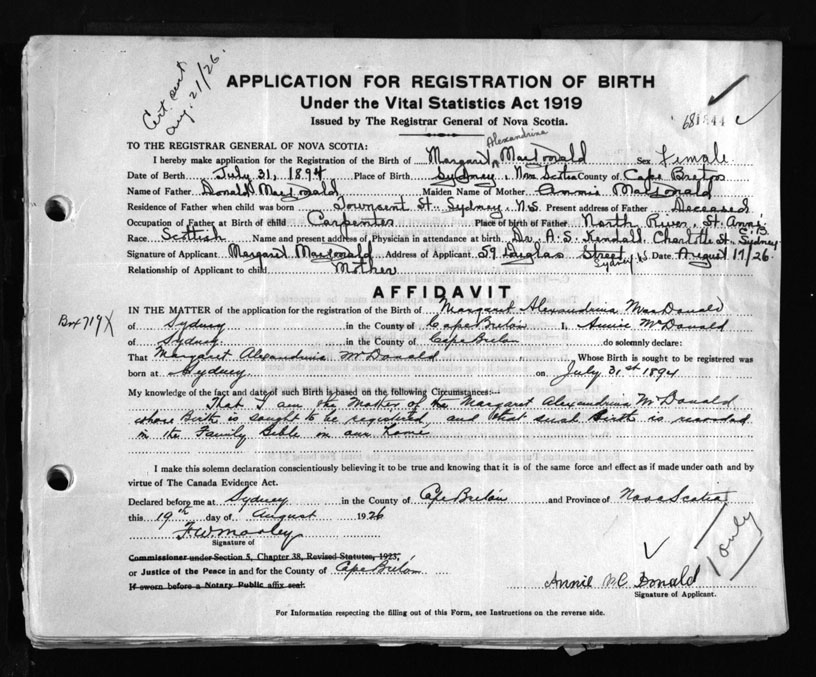 Cert. sent
Aug. 21/26.
APPLICATION FOR REGISTRATION OF BIRTH
Under the Vital Statistics Act 1919
Issued by The Registrar General of Nova Scotia.
681844
TO THE REGISTRAR GENERAL OF NOVA SCOTIA:
Alexandrina
I hereby make application for the Registration of the Birth of Margaret MacDonald Sex Female
Date of Birth July 31, 1894 Place of Birth Sydney, Nova Scotia County of Cape Breton
Name of Father Donald MacDonald Maiden Name of Mother Annie MacDonald
Residence of Father when child was born Townsent St. Sydney, N.S. Present address of Father Deceased
Occupation of Father at Birth of child Carpenter Place of birth of Father North River, St. Anns
C.B.
Race Scottish Name and present address of Physician in attendance at birth Dr. A.S. Kendall, Charlotte St. Sydney
Signature of Applicant Margaret MacDonald Address of Applicant 59 Douglas Street Sydney Date August 17/26.
Relationship of Applicant to child Mother
AFFIDAVIT
IN THE MATTER of the application for the registration of the Birth of Margaret Alexandrina MacDonald
Box 719 X
of Sydney in the County of Cape Breton I, Annie McDonald
of Sydney in the County of Cape Breton do solemnly declare:
That Margaret Alexandrina McDonald Whose Birth is sought to be registered was
born at Sydney on July 31st 1894
My knowledge of the fact and date of such Birth is based on the following Circumstances:
That I am the Mother of the Margaret Alexandrina McDonald
whose Birth is sought to be registered, and that such Birth is recorded
in the Family Bible in our Home
I make this solemn declaration conscientiously believing it to be true and knowing that it is of the same force and effect as if made under oath and by
virtue of The Canada Evidence Act.
Declared before me at Sydney in the County of Cape Breton and Province of Nova Scotia
this 19th day of August 1926
F.W. Morley
Signature of
Commissioner under Section 5, Chapter 38, Revised Statutes, 1923,
or Justice of the Peace in and for the County of Cape Breton
If sworn before a Notary Public affix seal.
1 only
Annie McDonald
Signature of Applicant.
For Information respecting the filling out of this Form, see Instructions on the reverse side.